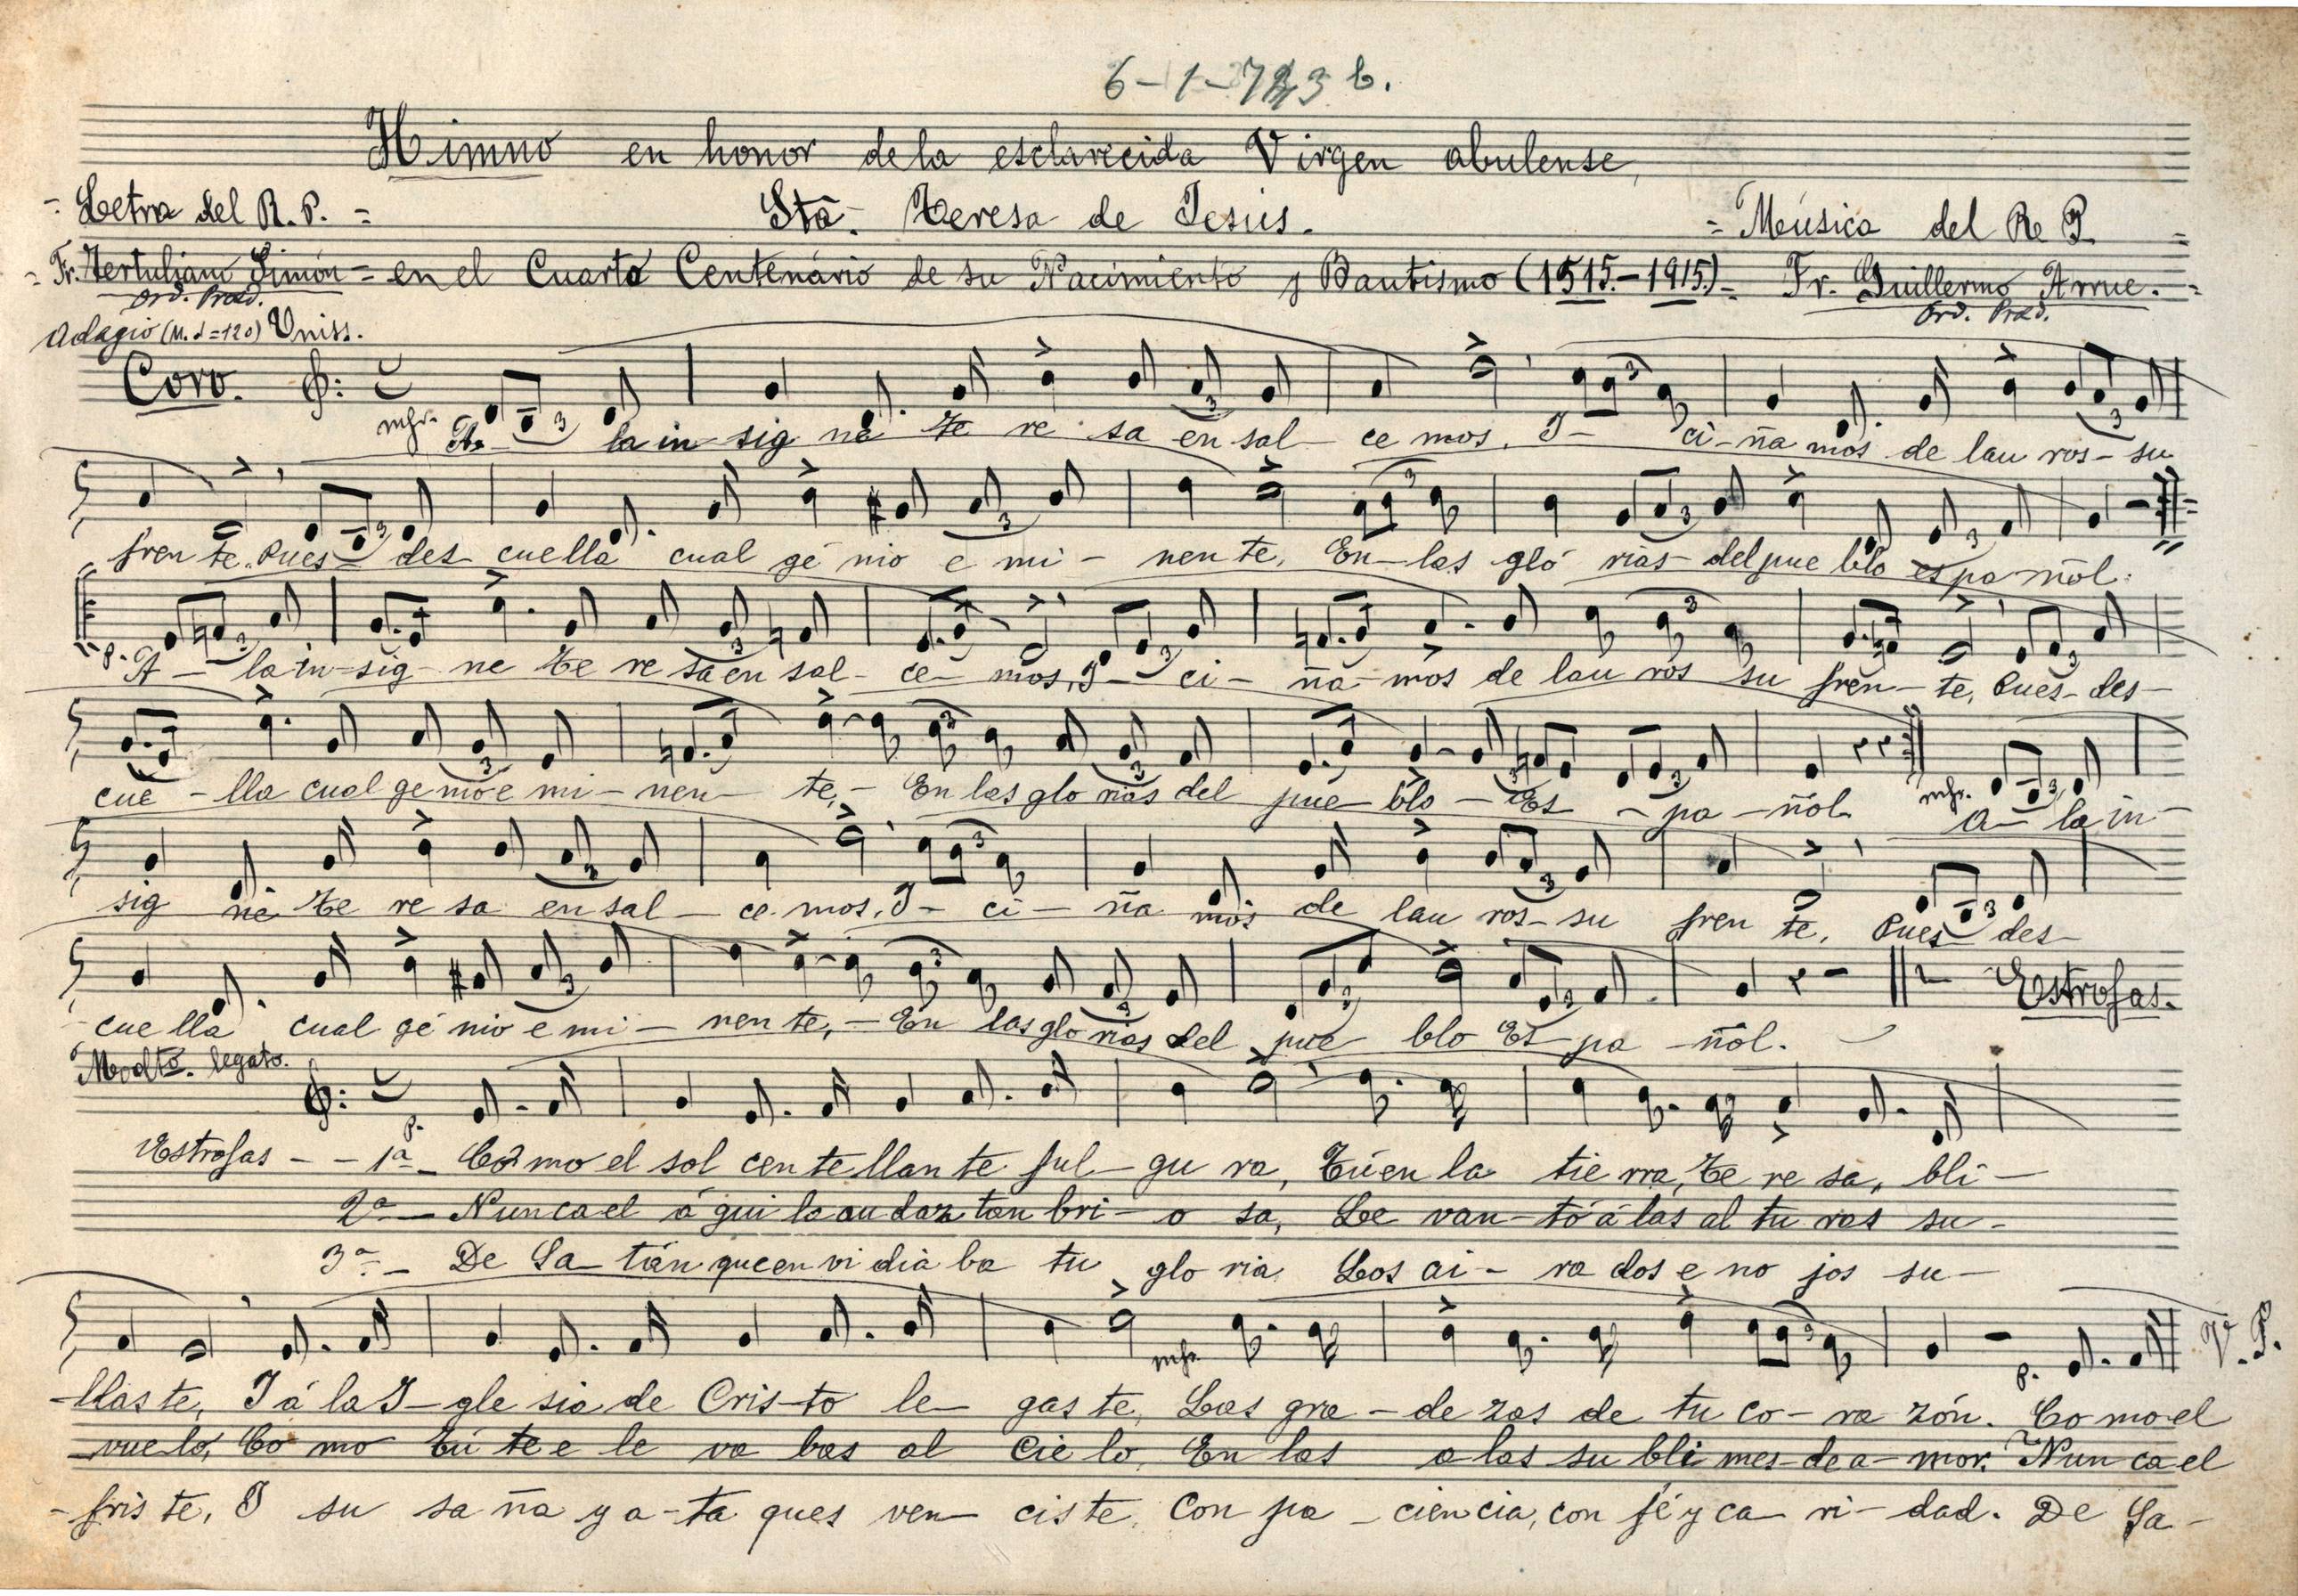 6-1-723 b.
Himno en honor de la esclarecida Virgen abulense,
= Letra del R. P. = Stā. Teresa de Jesús. = Música del R. P. =
= Fr. Tertuliano Simón = en el Cuarto Centenário de su Nacimiento y Bautismo (1515-1915) = Fr. Guillermo Arrue. =
Ord. Præd. Ord. Præd.
Adagio (M. ♩=120) Uniss.
Coro.
mf. A- la in- sig ne Te re sa en sal- ce mos, I- ci-ña mos de lau ros- su
fren te. Pues des cue lla cual gé nio e mi- nen te, En- las gló rias- del pue blo es pa ñol.
p. A- la in-sig- ne Te re sa en sal- ce- mos, I- ci- ña- mos de lau ros su fren- te, Pues- des-
cue -lla cual ge nio e mi- nen- te,- En las glo rias del pue- blo - Es - pa -ñol. mf. A- la in-
sig ne Te re sa en sal- ce mos, I- ci- ña mos de lau ros- su fren te, Pues des-
cue lla cual gé nio e mi- nen te,- En las glo rias del pue blo Es pa -ñol.
Estrofas.
Modto. legato.
p.
Estrofas - - 1ª- Có mo el sol cen te llan te ful- gu ra, Tú en la tie rra, Te re sa, bli-
2ª- Nun ca el á gui la au daz tan bri- o sa, Le van- tó á las al tu ras su-
3ª- De Sa- tán que en vi dia ba tu glo ria Los ai- ra dos e no jos su-
mf. p. V. S.
-llas te, I á la I- gle sia de Cris-to le- gas te, Las gra- de zas de tu co- ra zón. Co mo el
vue lo, Co mo tú te e le va bas al Cie lo, En las a las su bli mes- de a- mor. Nun ca el
-fris te, I su sa ña y a-ta ques ven- cis te, Con pa- cien cia, con fé y ca- ri- dad. De Sa-